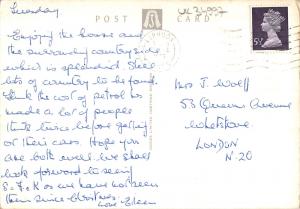 Tuesday
Enjoying the house and
the surrounding countryside
which is splendid. Still
lots of country to be found.
Think the cost of petrol has
made a lot of people
think twice before getting
out their cars. Hope you
are both well. We shall
look forward to seeing
S & K as we have not seen
them since Christmas
Love Eileen
POST CARD
5½P
Mrs J. Wolff
53 Queens Avenue
Whetstone
LONDON
N.20